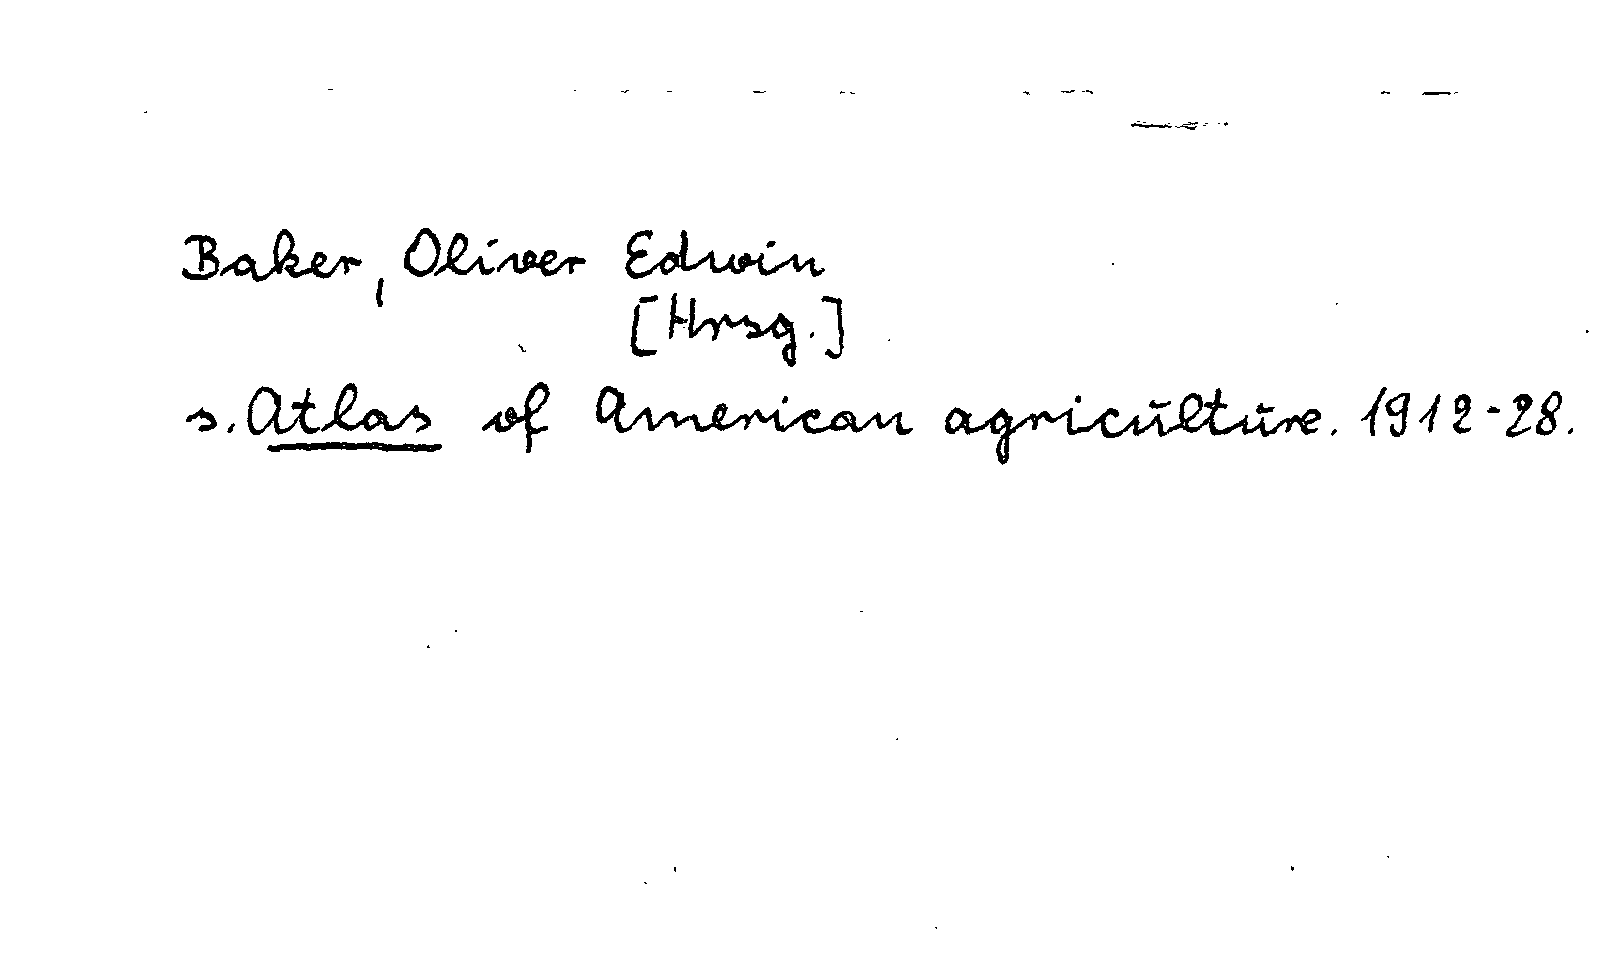 Baker, Oliver Edwin
[Hrsg.]
s. Atlas of American agriculture. 1912-28.